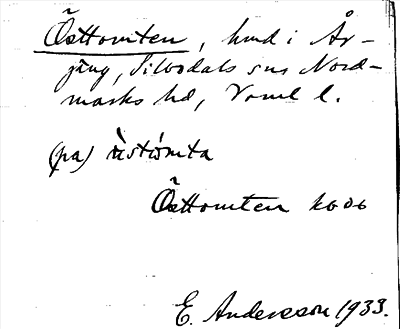 Östtomten, hmd i År-
jäng, Silbodals sn, Nord-
marks hd, Vrml l.
(pa) ùstòmta
Östtomten koos
E. Andersson 1933.